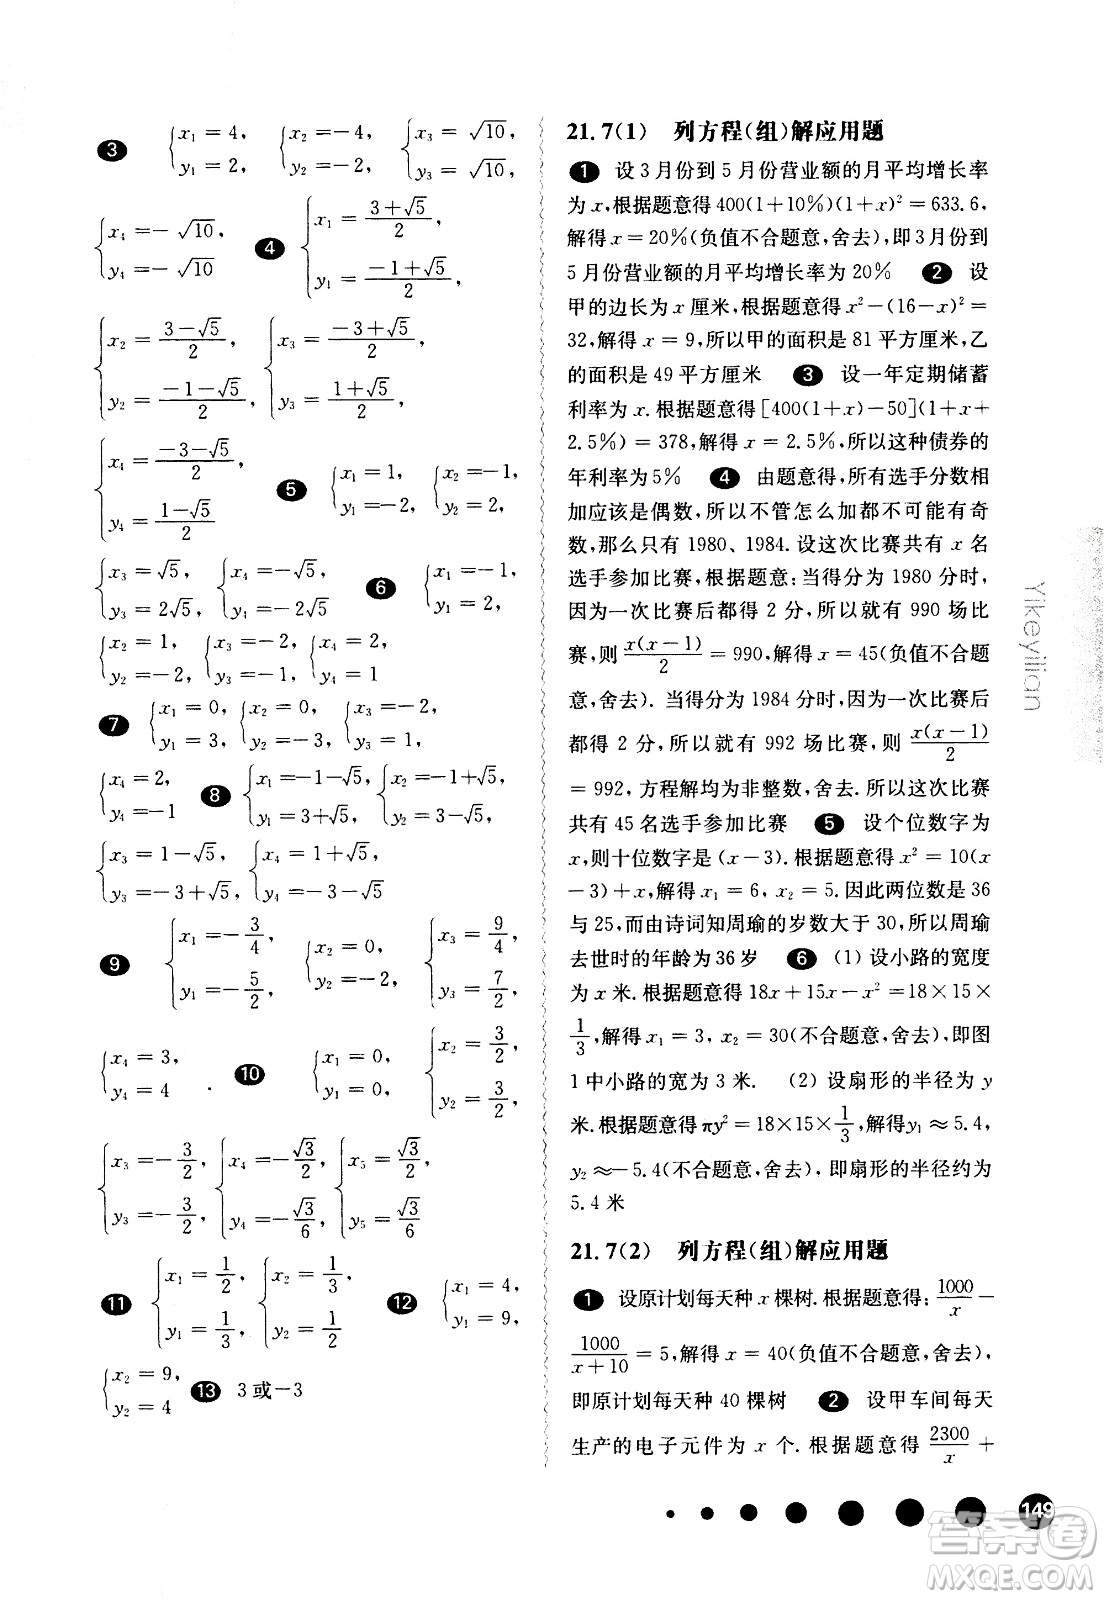 3 { x₁ = 4, y₁ = 2, { x₂ = −4, y₂ = −2, { x₃ = √10, y₃ = √10,
{ x₄ = −√10, y₄ = −√10 4 { x₁ = (3+√5)/2, y₁ = (−1+√5)/2,
{ x₂ = (3−√5)/2, y₂ = (−1−√5)/2, { x₃ = (−3+√5)/2, y₃ = (1+√5)/2,
{ x₄ = (−3−√5)/2, y₄ = (1−√5)/2 5 { x₁ = 1, y₁ = −2, { x₂ = −1, y₂ = 2,
{ x₃ = √5, y₃ = 2√5, { x₄ = −√5, y₄ = −2√5 6 { x₁ = −1, y₁ = 2,
{ x₂ = 1, y₂ = −2, { x₃ = −2, y₃ = −1, { x₄ = 2, y₄ = 1
7 { x₁ = 0, y₁ = 3, { x₂ = 0, y₂ = −3, { x₃ = −2, y₃ = 1,
{ x₄ = 2, y₄ = −1 8 { x₁ = −1−√5, y₁ = 3+√5, { x₂ = −1+√5, y₂ = 3−√5,
{ x₃ = 1−√5, y₃ = −3+√5, { x₄ = 1+√5, y₄ = −3−√5
9 { x₁ = −3/4, y₁ = −5/2, { x₂ = 0, y₂ = −1, { x₃ = 9/4, y₃ = 7/2,
{ x₄ = 3, y₄ = 4 . 10 { x₁ = 0, y₁ = 0, { x₂ = 3/2, y₂ = 3/2,
{ x₃ = −3/2, y₃ = −3/2, { x₄ = −√3/2, y₄ = −√3/6, { x₅ = √3/2, y₅ = √3/6
11 { x₁ = 1/2, y₁ = 1/3, { x₂ = 1/3, y₂ = 1/2 12 { x₁ = 4, y₁ = 9,
{ x₂ = 9, y₂ = 4 13 3 或 −3
21.7(1) 列方程(组)解应用题
1 设 3 月份到 5 月份营业额的月平均增长率
为 x,根据题意得 400(1+10%)(1+x)² = 633.6,
解得 x = 20%(负值不合题意,舍去),即 3 月份到
5 月份营业额的月平均增长率为 20% 2 设
甲的边长为 x 厘米,根据题意得 x²−(16−x)² =
32,解得 x = 9,所以甲的面积是 81 平方厘米,乙
的面积是 49 平方厘米 3 设一年定期储蓄
利率为 x. 根据题意得[400(1+x)−50](1+x+
2.5%) = 378,解得 x = 2.5%,所以这种债券的
年利率为 5% 4 由题意得,所有选手分数相
加应该是偶数,所以不管怎么加都不可能有奇
数,那么只有 1980、1984. 设这次比赛共有 x 名
选手参加比赛,根据题意:当得分为 1980 分时,
因为一次比赛后都得 2 分,所以就有 990 场比
赛,则 x(x−1)/2 = 990,解得 x = 45(负值不合题
意,舍去). 当得分为 1984 分时,因为一次比赛后
都得 2 分,所以就有 992 场比赛,则 x(x−1)/2
= 992,方程解均为非整数,舍去. 所以这次比赛
共有 45 名选手参加比赛 5 设个位数字为
x,则十位数字是 (x−3). 根据题意得 x² = 10(x
−3)+x,解得 x₁ = 6, x₂ = 5. 因此两位数是 36
与 25,而由诗词知周瑜的岁数大于 30,所以周瑜
去世时的年龄为 36 岁 6 (1) 设小路的宽度
为 x 米. 根据题意得 18x+15x−x² = 18×15×
1/3,解得 x₁ = 3, x₂ = 30(不合题意,舍去),即图
1 中小路的宽为 3 米. (2) 设扇形的半径为 y
米. 根据题意得 πy² = 18×15×1/3,解得 y₁ ≈ 5.4,
y₂ ≈ −5.4(不合题意,舍去),即扇形的半径约为
5.4 米
21.7(2) 列方程(组)解应用题
1 设原计划每天种 x 棵树. 根据题意得: 1000/x −
1000/(x+10) = 5,解得 x = 40(负值不合题意,舍去),
即原计划每天种 40 棵树 2 设甲车间每天
生产的电子元件为 x 个. 根据题意得 2300/x +
Yikeyilian
149
答案圈
MXQE.COM